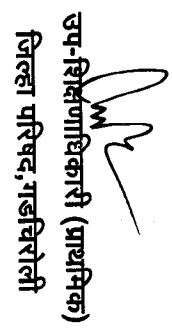 उप-शिक्षणाधिकारी (प्राथमिक)
जिल्हा परिषद,गडचिरोली